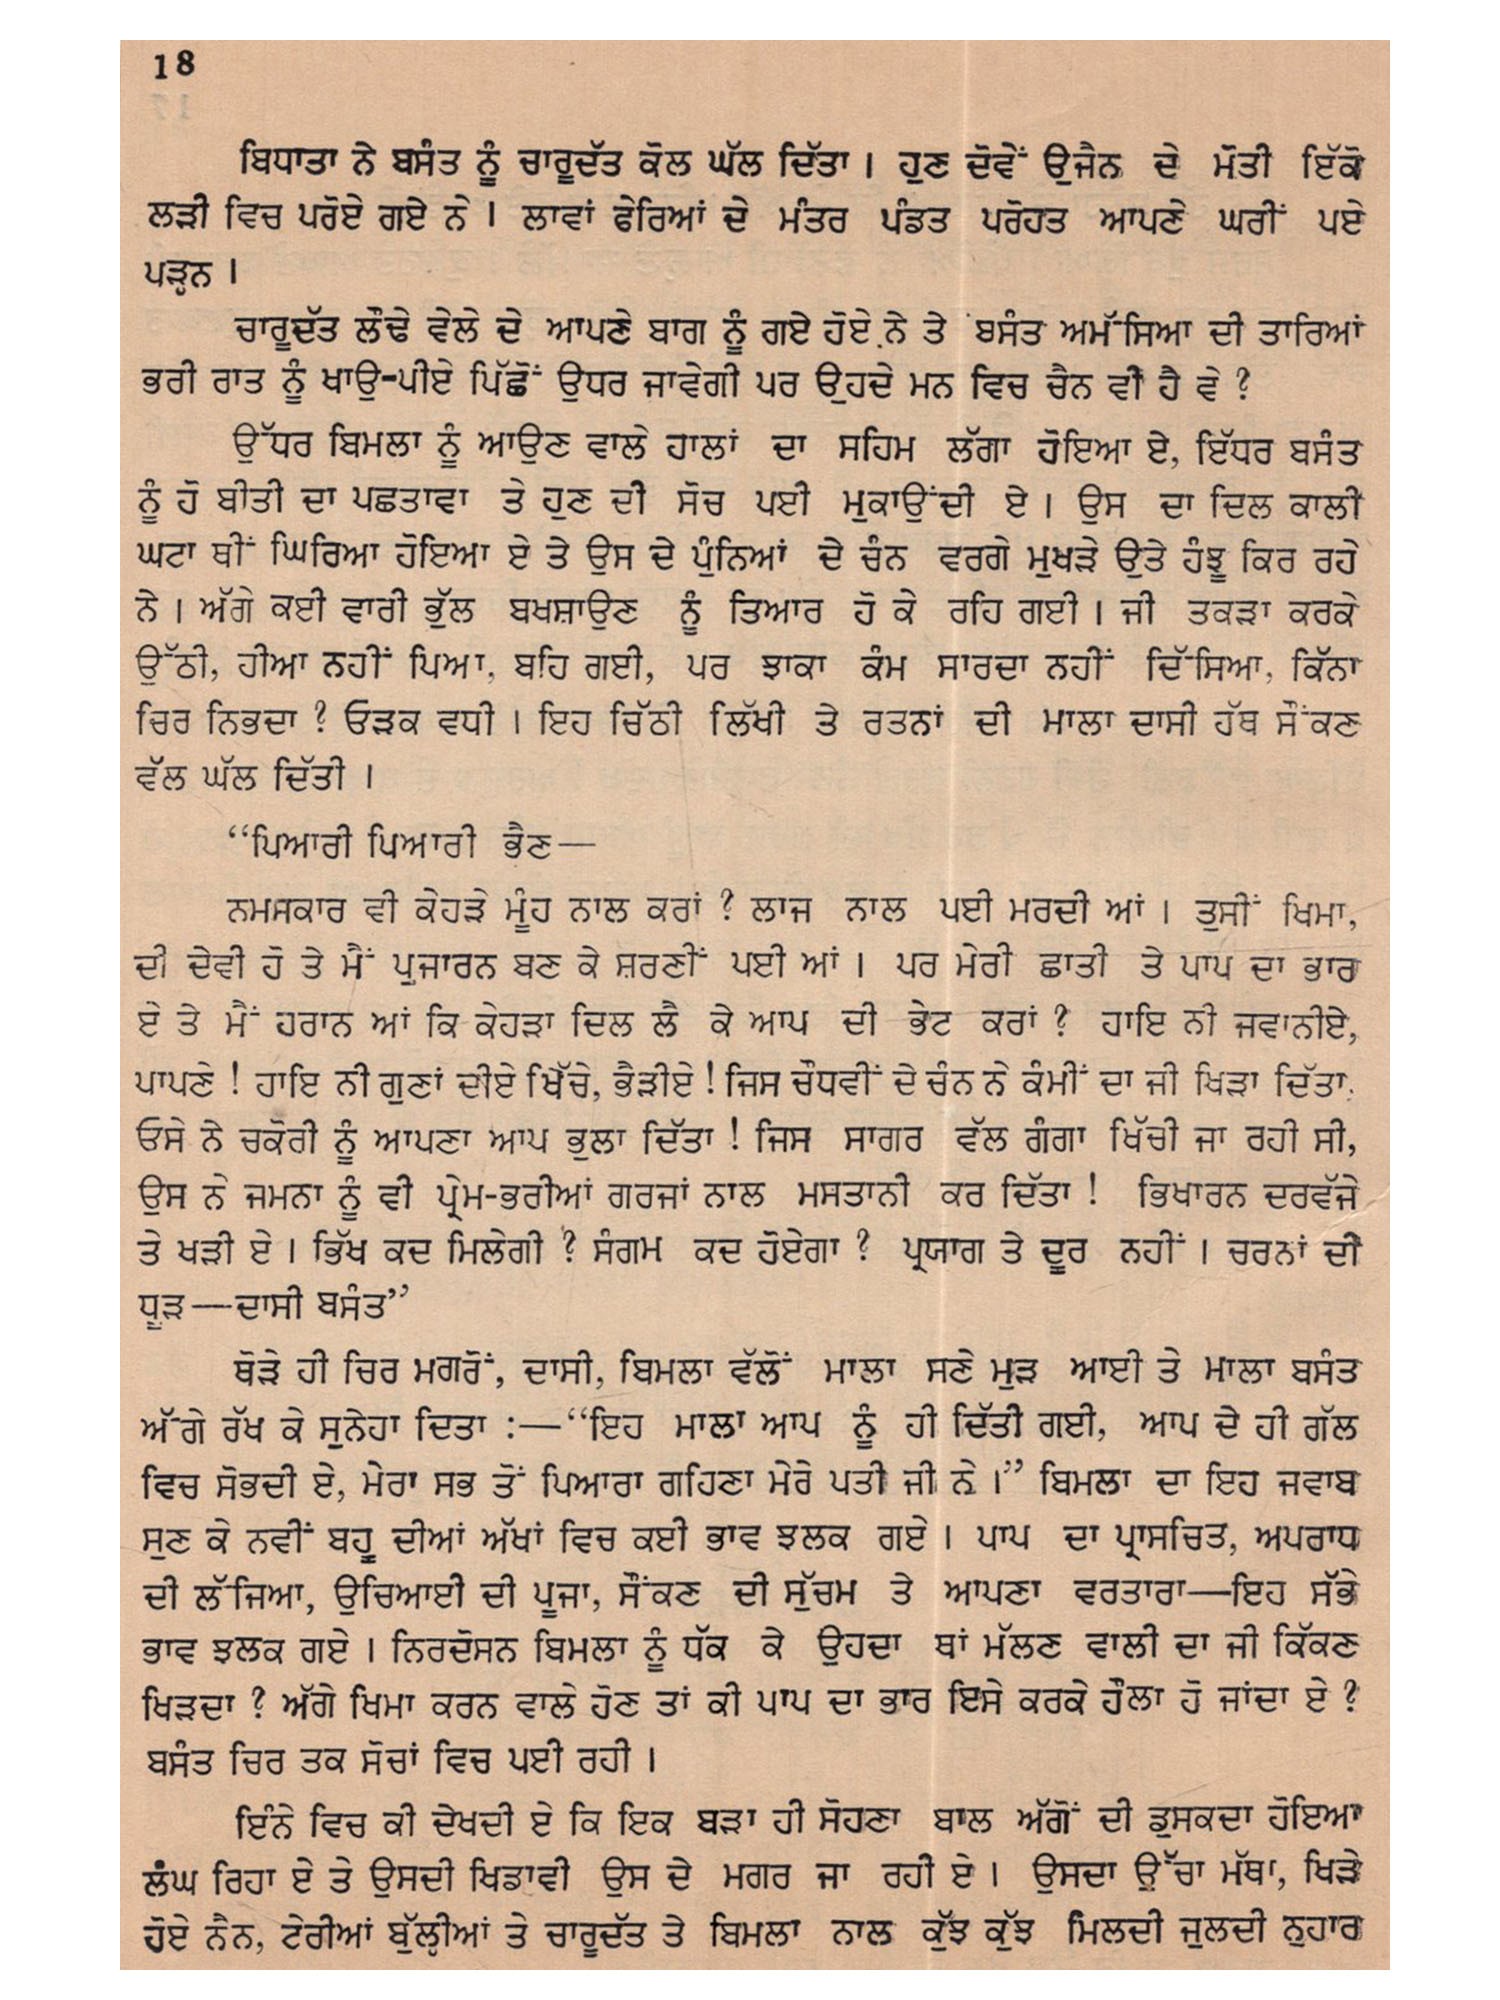 18
ਬਿਧਾਤਾ ਨੇ ਬਸੰਤ ਨੂੰ ਚਾਰੂਦੱਤ ਕੋਲ ਘੱਲ ਦਿੱਤਾ । ਹੁਣ ਦੋਵੇਂ ਉਜੈਨ ਦੇ ਮੋਤੀ ਇੱਕੋ
ਲੜੀ ਵਿਚ ਪਰੋਏ ਗਏ ਨੇ । ਲਾਵਾਂ ਫੇਰਿਆਂ ਦੇ ਮੰਤਰ ਪੰਡਤ ਪਰੋਹਤ ਆਪਣੇ ਘਰੀਂ ਪਏ
ਪੜ੍ਹਨ ।
ਚਾਰੂਦੱਤ ਲੌਢੇ ਵੇਲੇ ਦੇ ਆਪਣੇ ਬਾਗ ਨੂੰ ਗਏ ਹੋਏ ਨੇ ਤੇ ਬਸੰਤ ਅਮੱਸਿਆ ਦੀ ਤਾਰਿਆਂ
ਭਰੀ ਰਾਤ ਨੂੰ ਖਾਉ-ਪੀਏ ਪਿੱਛੋਂ ਉਧਰ ਜਾਵੇਗੀ ਪਰ ਉਹਦੇ ਮਨ ਵਿਚ ਚੈਨ ਵੀ ਹੈ ਵੇ ?
ਉੱਧਰ ਬਿਮਲਾ ਨੂੰ ਆਉਣ ਵਾਲੇ ਹਾਲਾਂ ਦਾ ਸਹਿਮ ਲੱਗਾ ਹੋਇਆ ਏ, ਇੱਧਰ ਬਸੰਤ
ਨੂੰ ਹੋ ਬੀਤੀ ਦਾ ਪਛਤਾਵਾ ਤੇ ਹੁਣ ਦੀ ਸੋਚ ਪਈ ਮੁਕਾਉਂਦੀ ਏ । ਉਸ ਦਾ ਦਿਲ ਕਾਲੀ
ਘਟਾ ਥੀਂ ਘਿਰਿਆ ਹੋਇਆ ਏ ਤੇ ਉਸ ਦੇ ਪੁੰਨਿਆਂ ਦੇ ਚੰਨ ਵਰਗੇ ਮੁਖੜੇ ਉਤੇ ਹੰਝੂ ਕਿਰ ਰਹੇ
ਨੇ । ਅੱਗੇ ਕਈ ਵਾਰੀ ਭੁੱਲ ਬਖਸ਼ਾਉਣ ਨੂੰ ਤਿਆਰ ਹੋ ਕੇ ਰਹਿ ਗਈ । ਜੀ ਤਕੜਾ ਕਰਕੇ
ਉੱਠੀ, ਹੀਆ ਨਹੀਂ ਪਿਆ, ਬਹਿ ਗਈ, ਪਰ ਝਾਕਾ ਕੰਮ ਸਾਰਦਾ ਨਹੀਂ ਦਿੱਸਿਆ, ਕਿੰਨਾ
ਚਿਰ ਨਿਭਦਾ ? ਓੜਕ ਵਧੀ । ਇਹ ਚਿੱਠੀ ਲਿੱਖੀ ਤੇ ਰਤਨਾਂ ਦੀ ਮਾਲਾ ਦਾਸੀ ਹੱਥ ਸੌਂਕਣ
ਵੱਲ ਘੱਲ ਦਿੱਤੀ ।
“ਪਿਆਰੀ ਪਿਆਰੀ ਭੈਣ—
ਨਮਸਕਾਰ ਵੀ ਕੇਹੜੇ ਮੂੰਹ ਨਾਲ ਕਰਾਂ ? ਲਾਜ ਨਾਲ ਪਈ ਮਰਦੀ ਆਂ । ਤੁਸੀਂ ਖਿਮਾ,
ਦੀ ਦੇਵੀ ਹੋ ਤੇ ਮੈਂ ਪੁਜਾਰਨ ਬਣ ਕੇ ਸ਼ਰਣੀਂ ਪਈ ਆਂ । ਪਰ ਮੇਰੀ ਛਾਤੀ ਤੇ ਪਾਪ ਦਾ ਭਾਰ
ਏ ਤੇ ਮੈਂ ਹਰਾਨ ਆਂ ਕਿ ਕੇਹੜਾ ਦਿਲ ਲੈ ਕੇ ਆਪ ਦੀ ਭੇਟ ਕਰਾਂ ? ਹਾਇ ਨੀ ਜਵਾਨੀਏ,
ਪਾਪਣੇ ! ਹਾਇ ਨੀ ਗੁਣਾਂ ਦੀਏ ਖਿੱਚੇ, ਭੈੜੀਏ ! ਜਿਸ ਚੌਧਵੀਂ ਦੇ ਚੰਨ ਨੇ ਕੰਮੀਂ ਦਾ ਜੀ ਖਿੜਾ ਦਿੱਤਾ,
ਓਸੇ ਨੇ ਚਕੋਰੀ ਨੂੰ ਆਪਣਾ ਆਪ ਭੁਲਾ ਦਿੱਤਾ ! ਜਿਸ ਸਾਗਰ ਵੱਲ ਗੰਗਾ ਖਿੱਚੀ ਜਾ ਰਹੀ ਸੀ,
ਉਸ ਨੇ ਜਮਨਾ ਨੂੰ ਵੀ ਪ੍ਰੇਮ-ਭਰੀਆਂ ਗਰਜਾਂ ਨਾਲ ਮਸਤਾਨੀ ਕਰ ਦਿੱਤਾ ! ਭਿਖਾਰਨ ਦਰਵੱਜੇ
ਤੇ ਖੜੀ ਏ । ਭਿੱਖ ਕਦ ਮਿਲੇਗੀ ? ਸੰਗਮ ਕਦ ਹੋਏਗਾ ? ਪ੍ਰਯਾਗ ਤੇ ਦੂਰ ਨਹੀਂ । ਚਰਨਾਂ ਦੀ
ਧੂੜ—ਦਾਸੀ ਬਸੰਤ”
ਥੋੜੇ ਹੀ ਚਿਰ ਮਗਰੋਂ, ਦਾਸੀ, ਬਿਮਲਾ ਵੱਲੋਂ ਮਾਲਾ ਸਣੇ ਮੁੜ ਆਈ ਤੇ ਮਾਲਾ ਬਸੰਤ
ਅੱਗੇ ਰੱਖ ਕੇ ਸੁਨੇਹਾ ਦਿਤਾ :—“ਇਹ ਮਾਲਾ ਆਪ ਨੂੰ ਹੀ ਦਿੱਤੀ ਗਈ, ਆਪ ਦੇ ਹੀ ਗੱਲ
ਵਿਚ ਸੋਭਦੀ ਏ, ਮੇਰਾ ਸਭ ਤੋਂ ਪਿਆਰਾ ਗਹਿਣਾ ਮੇਰੇ ਪਤੀ ਜੀ ਨੇ ।” ਬਿਮਲਾ ਦਾ ਇਹ ਜਵਾਬ
ਸੁਣ ਕੇ ਨਵੀਂ ਬਹੂ ਦੀਆਂ ਅੱਖਾਂ ਵਿਚ ਕਈ ਭਾਵ ਝਲਕ ਗਏ । ਪਾਪ ਦਾ ਪ੍ਰਾਸਚਿਤ, ਅਪਰਾਧ
ਦੀ ਲੱਜਿਆ, ਉਚਿਆਈ ਦੀ ਪੂਜਾ, ਸੌਂਕਣ ਦੀ ਸੁੱਚਮ ਤੇ ਆਪਣਾ ਵਰਤਾਰਾ—ਇਹ ਸੱਭੇ
ਭਾਵ ਝਲਕ ਗਏ । ਨਿਰਦੋਸਨ ਬਿਮਲਾ ਨੂੰ ਧੱਕ ਕੇ ਉਹਦਾ ਥਾਂ ਮੱਲਣ ਵਾਲੀ ਦਾ ਜੀ ਕਿੱਕਣ
ਖਿੜਦਾ ? ਅੱਗੇ ਖਿਮਾ ਕਰਨ ਵਾਲੇ ਹੋਣ ਤਾਂ ਕੀ ਪਾਪ ਦਾ ਭਾਰ ਇਸੇ ਕਰਕੇ ਹੌਲਾ ਹੋ ਜਾਂਦਾ ਏ ?
ਬਸੰਤ ਚਿਰ ਤਕ ਸੋਚਾਂ ਵਿਚ ਪਈ ਰਹੀ ।
ਇੰਨੇ ਵਿਚ ਕੀ ਦੇਖਦੀ ਏ ਕਿ ਇਕ ਬੜਾ ਹੀ ਸੋਹਣਾ ਬਾਲ ਅੱਗੋਂ ਦੀ ਡੁਸਕਦਾ ਹੋਇਆ
ਲੰਘ ਰਿਹਾ ਏ ਤੇ ਉਸਦੀ ਖਿਡਾਵੀ ਉਸ ਦੇ ਮਗਰ ਜਾ ਰਹੀ ਏ । ਉਸਦਾ ਉੱਚਾ ਮੱਥਾ, ਖਿੜੇ
ਹੋਏ ਨੈਨ, ਟੇਰੀਆਂ ਬੁੱਲ੍ਹੀਆਂ ਤੇ ਚਾਰੂਦੱਤ ਤੇ ਬਿਮਲਾ ਨਾਲ ਕੁੱਝ ਕੁੱਝ ਮਿਲਦੀ ਜੁਲਦੀ ਨੁਹਾਰ